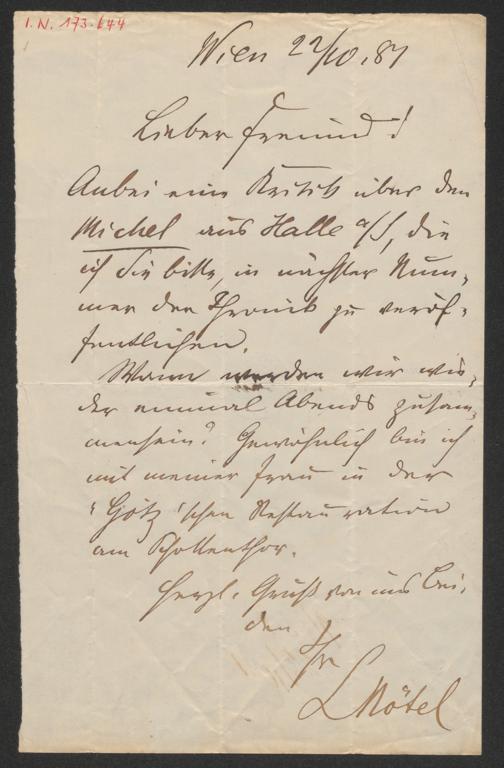 I. N. 173.644
Wien 22/10. 87
Lieber Freund!
Anbei eine Kritik über den
Michel aus Halle a/S, die
ich Sie bitte, in nächster Num-
mer der Chronik zu veröf-
fentlichen.
Wann werden wir wie-
der einmal Abends zusam-
mensein? Gewöhnlich bin ich
mit meiner Frau in der
"Götz'schen Restauration
am Schottenthor.
Herzl. Gruß von uns bei-
den
Ihr
L Nötel